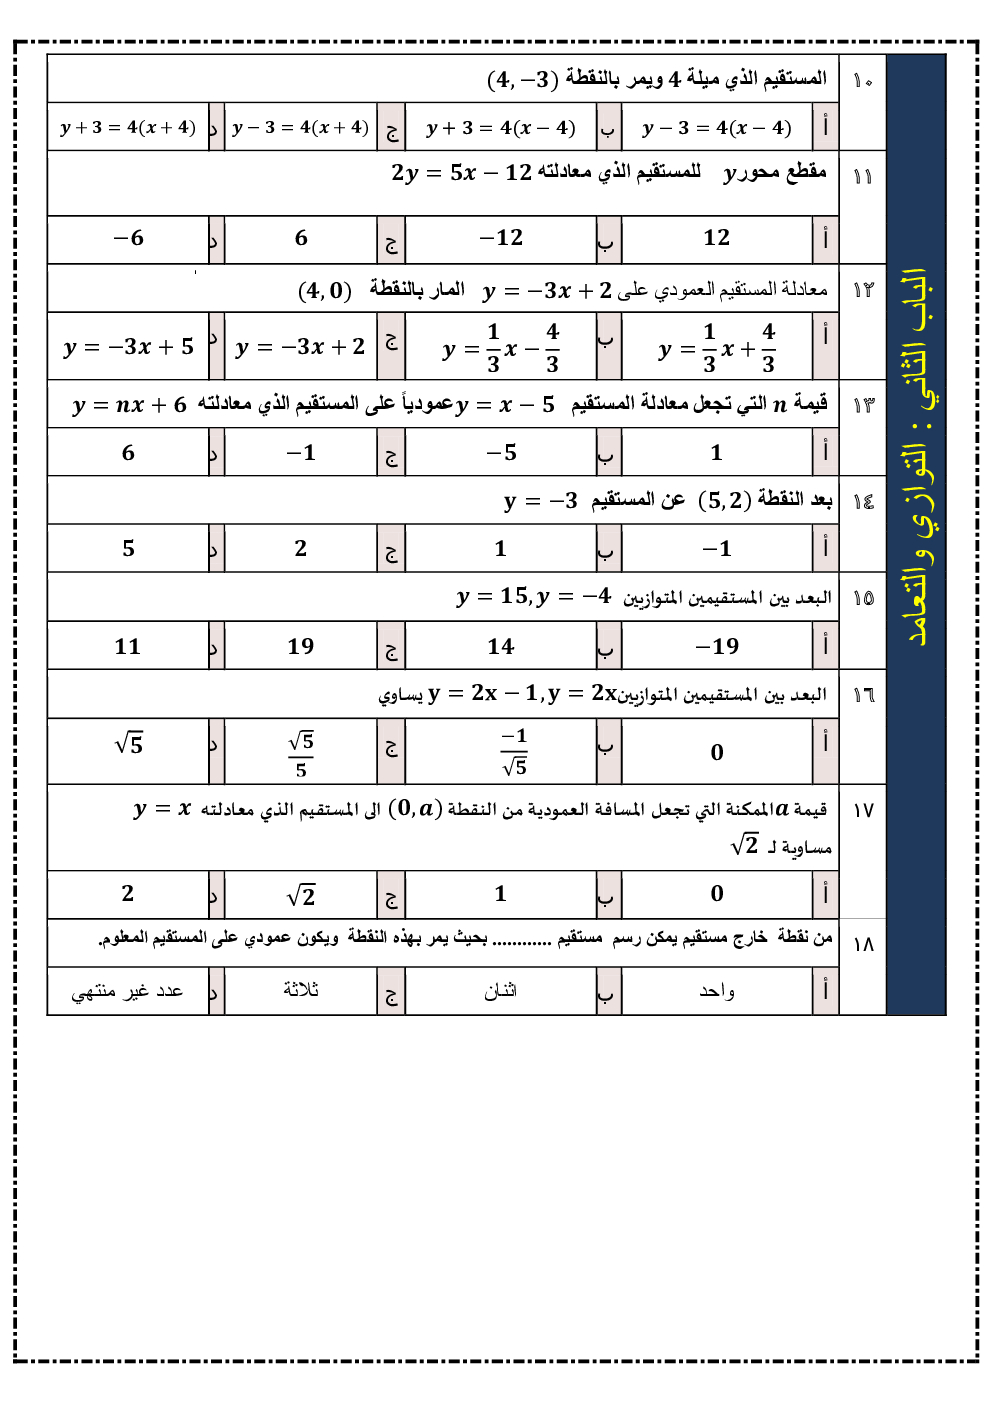 الباب الثاني : التوازي والتعامد
١٠ المستقيم الذي ميلة 4 ويمر بالنقطة (4, −3)
أ y − 3 = 4(x − 4) ب y + 3 = 4(x − 4) ج y − 3 = 4(x + 4) د y + 3 = 4(x + 4)
١١ مقطع محور y للمستقيم الذي معادلته 2y = 5x − 12
أ 12 ب −12 ج 6 د −6
١٢ معادلة المستقيم العمودي على y = −3x + 2 المار بالنقطة (4, 0)
أ y = 1/3 x + 4/3 ب y = 1/3 x − 4/3 ج y = −3x + 2 د y = −3x + 5
١٣ قيمة n التي تجعل معادلة المستقيم y = x − 5 عمودياً على المستقيم الذي معادلته y = nx + 6
أ 1 ب −5 ج −1 د 6
١٤ بعد النقطة (5, 2) عن المستقيم y = −3
أ −1 ب 1 ج 2 د 5
١٥ البعد بين المستقيمين المتوازيين y = 15, y = −4
أ −19 ب 14 ج 19 د 11
١٦ البعد بين المستقيمين المتوازيين y = 2x − 1, y = 2x يساوي
أ 0 ب −1/√5 ج √5/5 د √5
١٧ قيمة a الممكنة التي تجعل المسافة العمودية من النقطة (0, a) الى المستقيم الذي معادلته y = x
مساوية لـ √2
أ 0 ب 1 ج √2 د 2
١٨ من نقطة خارج مستقيم يمكن رسم مستقيم ............ بحيث يمر بهذه النقطة ويكون عمودي على المستقيم المعلوم.
أ واحد ب اثنان ج ثلاثة د عدد غير منتهي